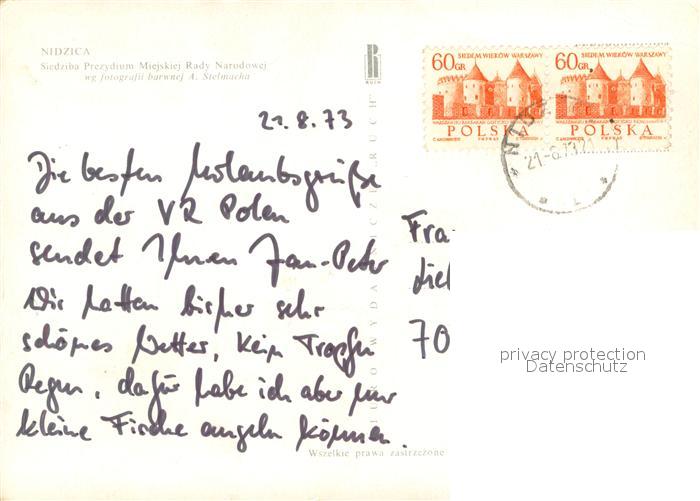 NIDZICA
Siedziba Prezydium Miejskiej Rady Narodowej
wg fotografii barwnej A. Stelmacha
RUCH
60 GR
SIEDEM WIEKÓW WARSZAWY
POLSKA
60 GR
SIEDEM WIEKÓW WARSZAWY
POLSKA
21.8.73
Die besten Urlaubsgrüße
aus der VR Polen
sendet Ihnen Jan-Peter
Wir hatten bisher sehr
schönes Wetter, kein Tropfen
Regen, dafür habe ich aber nur
kleine Fische angeln können.
Fra
70
privacy protection
Datenschutz
Wszelkie prawa zastrzeżone